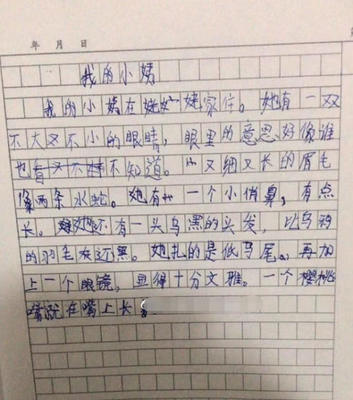 年 月 日
我的小姨
我的小姨在姥姥家住。她有一双
不大又不小的眼睛，眼里的意思好像谁
也看不知道。又细又长的眉毛
像两条水蛇。她有一个小俏鼻，有点
长。她还有一头乌黑的头发，比乌鸦
的羽毛还黑。她扎的是低马尾。再加
上一个眼镜，显得十分文雅。一个樱桃
嘴就在嘴上长